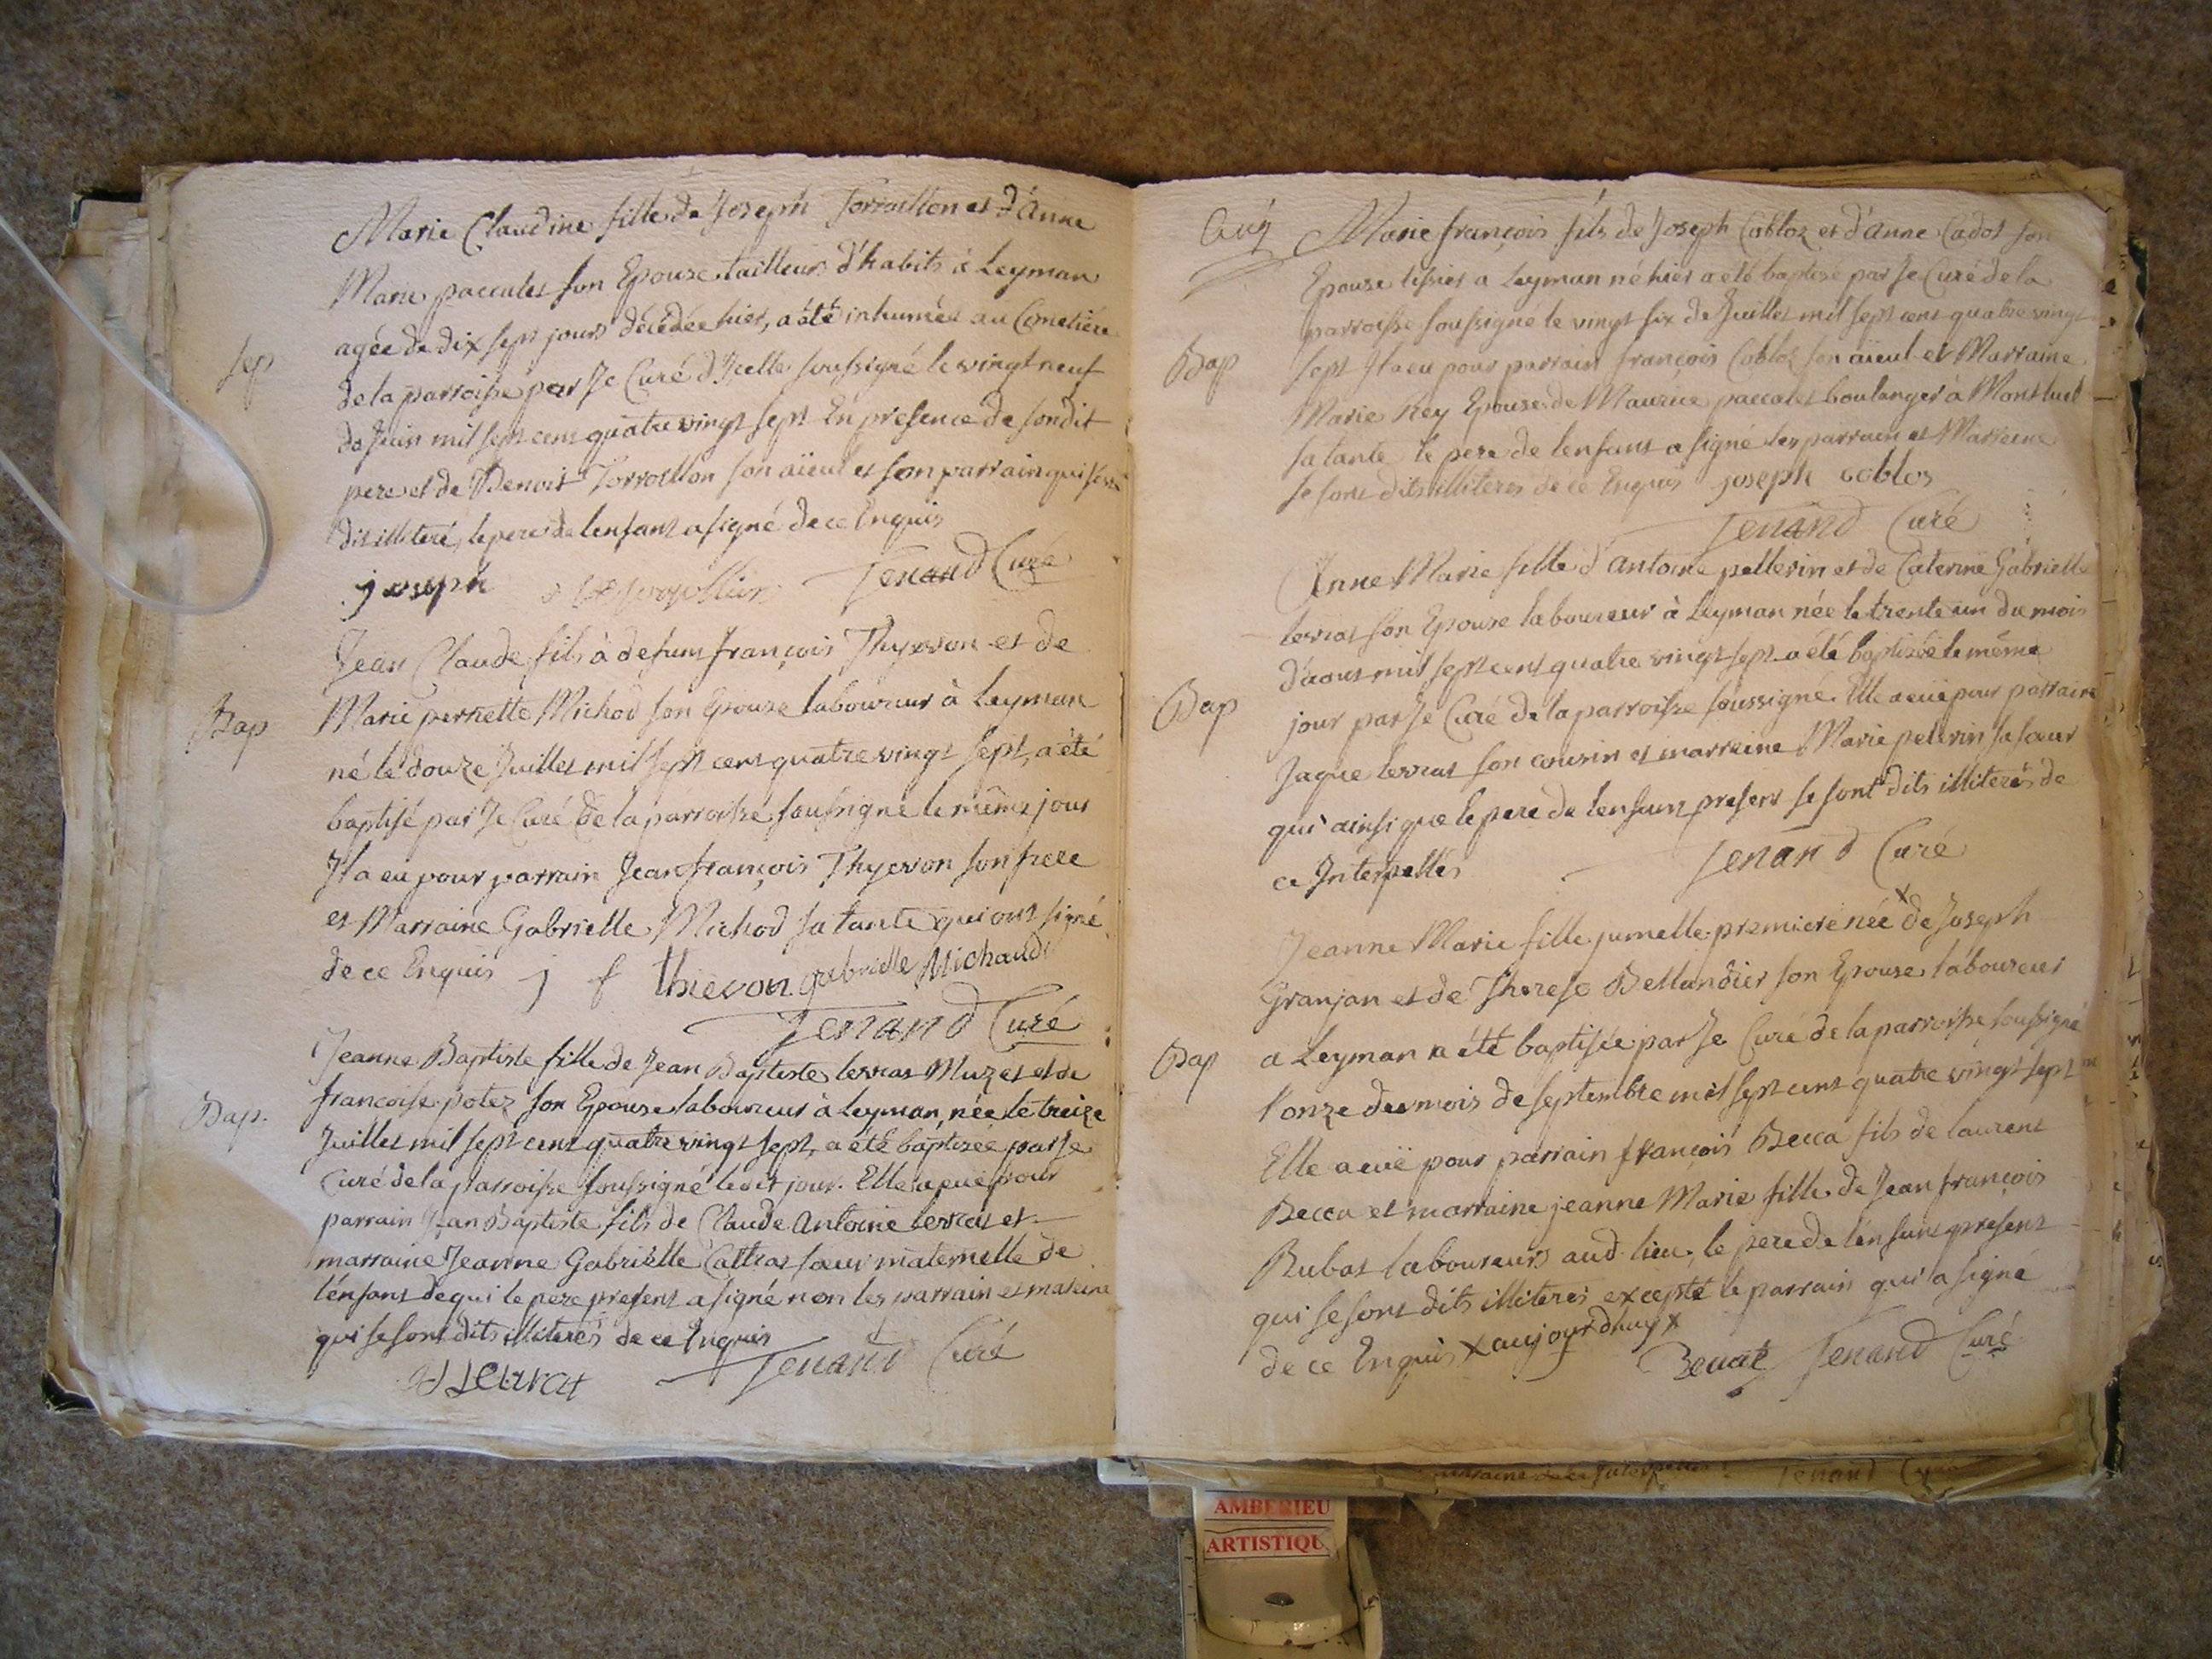 Marie Claudine fille de Joseph Torraillon et d'Anne
Marie paccalet son Epouse tailleur d'habits à Leyman
agée de dix sept jours décédée hier, a été inhumée au Cimetière
Sep
de la parroisse par Je Curé d'Icelle soussigné le vingt neuf
de Juin mil sept cent quatre vingt sept En presence de sondit
pere et de Benoit Torraillon son aïeul et son parrain qui s'est
dit illiteré, le pere de lenfant a signé de ce Enquis
joseph Jenand Curé
Jean Claude fils à defunt françois Thyevon et de
Bap
Marie pernette Michod son Epouse laboureur à Leyman
né le douze Juillet mil sept cent quatre vingt sept, a été
baptisé par Je Curé de la parroisse soussigné le même jour
Il a eu pour parrain Jean françois Thyevon son frere
et Marraine Gabrielle Michod sa tante qui ont signé
de ce Enquis j f thievon gabrielle Michaud
Jenand Curé
Jeanne Baptiste fille de Jean Baptiste lerras Muzet et de
Bap.
francoise potez son Epouse laboureur à Leyman, née le treize
Juillet mil sept cent quatre vingt sept, a été baptizée par Je
Curé de la parroisse soussigné ledit jour. Elle a eue pour
parrain Jean Baptiste fils de Claude Antoine lerras et
marraine Jeanne Gabrielle soeur maternelle de
l'enfant de qui le pere present a signé non les parrain et mareine
qui se sont dits illiterés de ce Enquis
Jenand Curé
Marie françois fils de Joseph Cobloz et d'Anne Cadot son
Epouse tissier a Leyman né hier a été baptisé par Je Curé de la
parroisse soussigné le vingt six de Juillet mil sept cent quatre vingt
Bap
sept Il a eu pour parrain françois Cobloz son aïeul et Marraine
Marie Rey Epouse de Maurice paccalet boulanger à Montluel
sa tante le pere de lenfant a signé les parrain et Marreine
se sont dits illiteres de ce Enquis joseph coblos
Jenand Curé
Anne Marie fille d'Antoine pellerin et de Caterine Gabrielle
lerras son Epouse laboureur à Leyman née le trente un du mois
d'aout mil sept cent quatre vingt sept a été baptisée le même
Bap
jour par Je Curé de la parroisse soussigné. Elle a eüe pour parrain
Jaque lerras son cousin et marreine Marie pelerin sa soeur
qui ainsi que le pere de lenfant present se sont dits illiterés de
ce Interpellés
Jenand Curé
Jeanne Marie fille jumelle premiere née x de Joseph
Granjan et de Therese Bellandier son Epouse laboureur
Bap
a Leyman a été baptisée par Je Curé de la parroisse soussigné
l'onze du mois de septembre mil sept cent quatre vingt sept
Elle a eüe pour parrain françois Becca fils de laurent
Becca et marraine jeanne Marie fille de Jean françois
Rubat laboureurs aud. lieu, le pere de l'enfant present
qui se sont dits illiteres excepté le parrain qui a signé
de ce Enquis x aujourdhuy x
Jenand Curé
Jenand Curé
AMBERIEU
ARTISTIQU